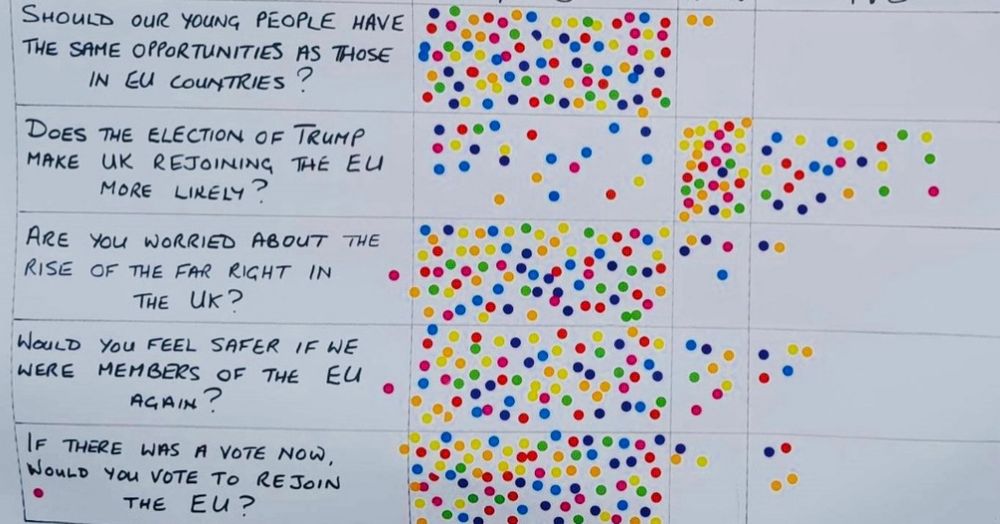 SHOULD OUR YOUNG PEOPLE HAVE
THE SAME OPPORTUNITIES AS THOSE
IN EU COUNTRIES?
DOES THE ELECTION OF TRUMP
MAKE UK REJOINING THE EU
MORE LIKELY?
ARE YOU WORRIED ABOUT THE
RISE OF THE FAR RIGHT IN
THE UK?
WOULD YOU FEEL SAFER IF WE
WERE MEMBERS OF THE EU
AGAIN?
IF THERE WAS A VOTE NOW,
WOULD YOU VOTE TO REJOIN
THE EU?